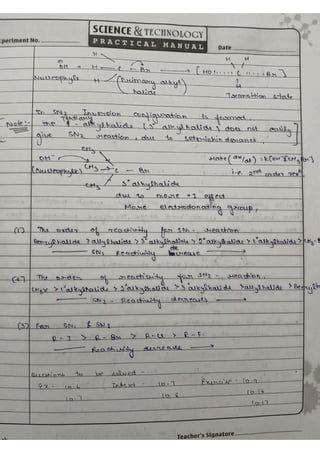 SCIENCE & TECHNOLOGY
PRACTICAL MANUAL
Experiment No.
Date
H H
OH + H – C – Br → [HO.... C ....Br]
Nucleophyle H (Primary alkyl halide) H
Transition state
In SN2 Inversion configuration is formed
Note:- Tertiary alkylhalide (3° alkylhalide) does not easily
give SN2 reaction, due to
CH3
OH⁻ CH3 C – Br Rate (dx/dt) =
(Nucleophyle) CH3 i.e. 2nd order
3° alkylhalide
due to more +I effect
More electrodonating group,
(1) The order of reactivity for SN1 reaction
Benzylhalide > allylhalide > 3° alkylhalide > 2° alkylhalide > 1° alkylhalide > CH3-
SN1 Reactivity
(2) The order of reactivity for SN2 reaction.
CH3X > 1° alkylhalide > 2° alkylhalide > 3° alkylhalide > allylhalide >
SN2 Reactivity decreases
(3) For SN1 & SN2
R-I > R-Br > R-Cl > R-F
Reactivity decreases
Questions to be solved -
Ex - 10.6 Intext - 10.7 Exercise - 10.9
10.7 10.8
10.17
Teacher's Signature